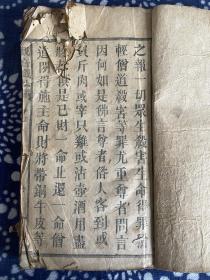 之報一切眾生殺害生命得罪就
輕僧道殺害等罪尤重尊者問言
因何如是佛言尊者俗人客到或
買斤肉或宰只雞或沽壺酒用盡
財帛俱是己財一命止還一命僧
道閑得施主命財將帶銅牛皮等